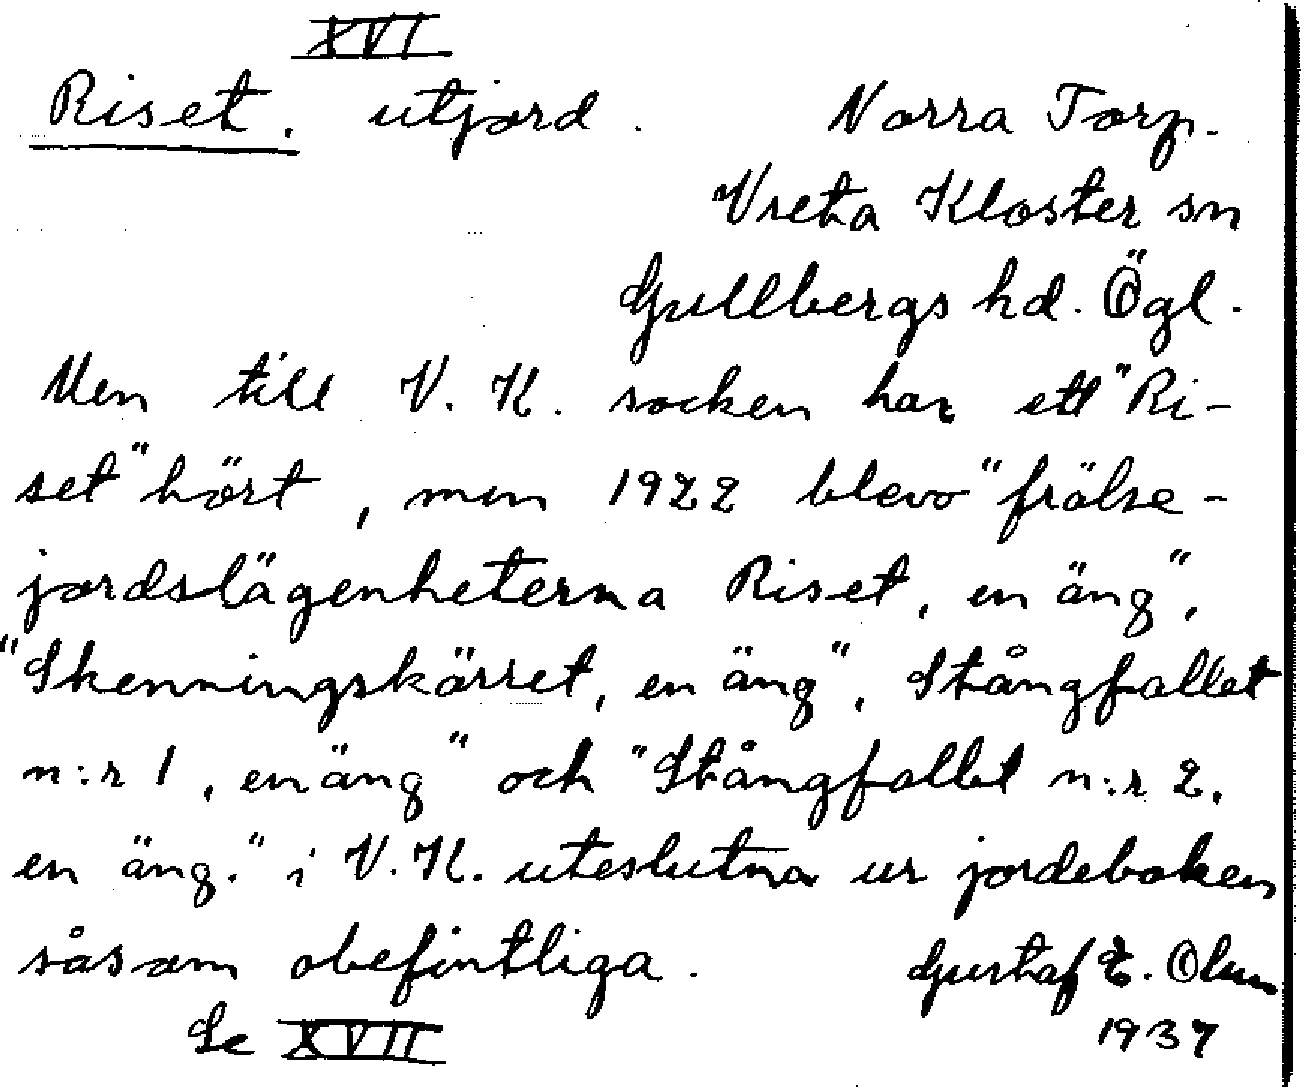 XVI
Riset. utjord. Norra Torp.
Vreta Kloster sn
Gullbergs hd. Ögl.
Men till V. K. socken har ett "Ri-
set" hört, men 1922 blevo "frälse-
jordslägenheterna Riset, en äng",
"Skenningskärret, en äng", Stångfallet
n:r 1, en äng" och "Stångfallet n:r 2,
en äng." i V. K. uteslutna ur jordeboken
såsom obefintliga. Gustaf E. Olsson
Se XVII 1937